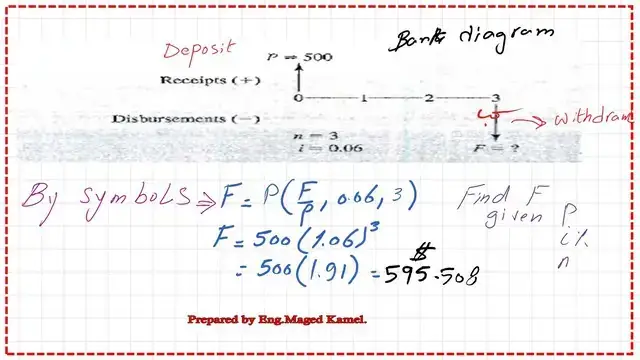 Bank diagram
Deposit
P = 500
Receipts (+)
0 1 2 3
Disbursements (−)
withdram
n = 3
i = 0.06
F = ?
By symbols ⇒ F = P(F/P, 0.06, 3)
Find F
given P
i%
n
F = 500(1.06)^3
= 500(1.91) = 595.508
$
Prepared by Eng.Maged Kamel.